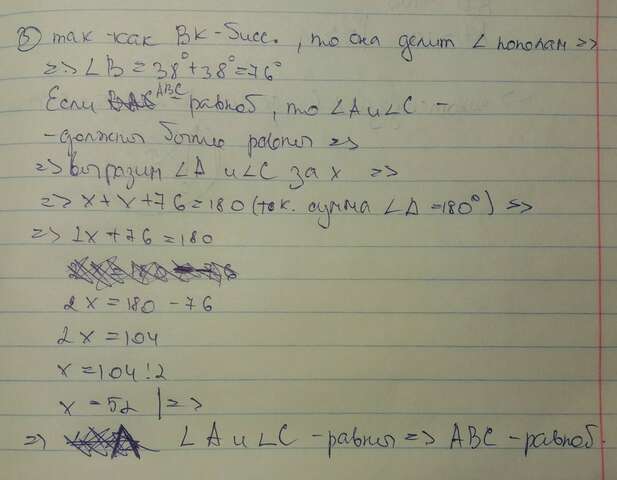 3) так как ВК-бисс., то она делит ∠ пополам =>
=> ∠B = 38° + 38° = 76°
Если ABC - равноб, то ∠A и ∠C -
- должны быть равны =>
=> выразим ∠A и ∠C за x =>
=> x + x + 76 = 180 (т.к. сумма ∠ Δ = 180°) =>
=> 2x + 76 = 180
2x = 180 - 76
2x = 104
x = 104 : 2
x = 52 | =>
=> ∠A и ∠C - равны => ABC - равноб.